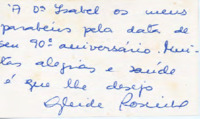 À Dª Isabel os meus
parabéns pela data de
seu 90º aniversário. Mui-
tas alegrias e saúde
é que lhe desejo